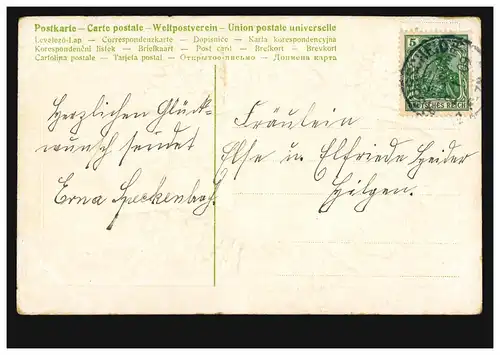 Postkarte – Carte postale – Weltpostverein – Union postale universelle
Levelező-Lap – Correspondenzkarte – Dopisnice – Karta korespondencyjna
Korespondenční lístek – Briefkaart – Post card – Brefkort – Brevkort
Cartolina postale – Tarjeta postal – Открытое письмо – Дописна карта.
5
DEUTSCHES REICH
Herzlichen Glück-
wunsch sendet
Erna Speckenbach.
Fräulein
Else u. Elfriede Heider
Hilgen.